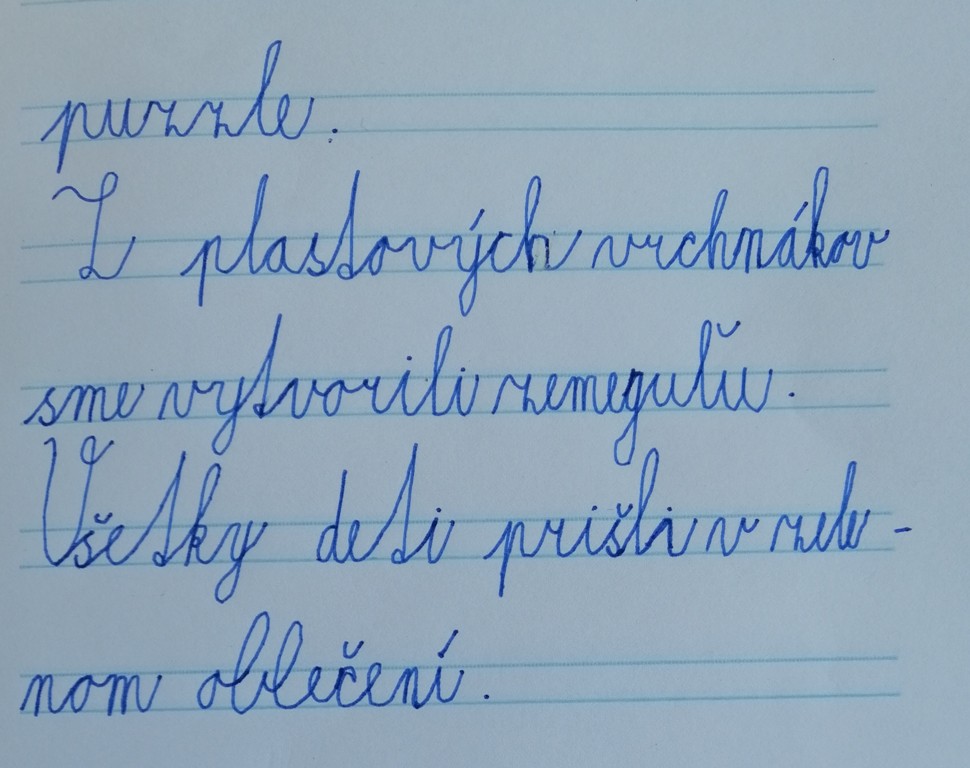 puzzle.
Z plastových vrchnákov
sme vytvorili zemeguľu.
Všetky deti prišli v zele-
nom oblečení.